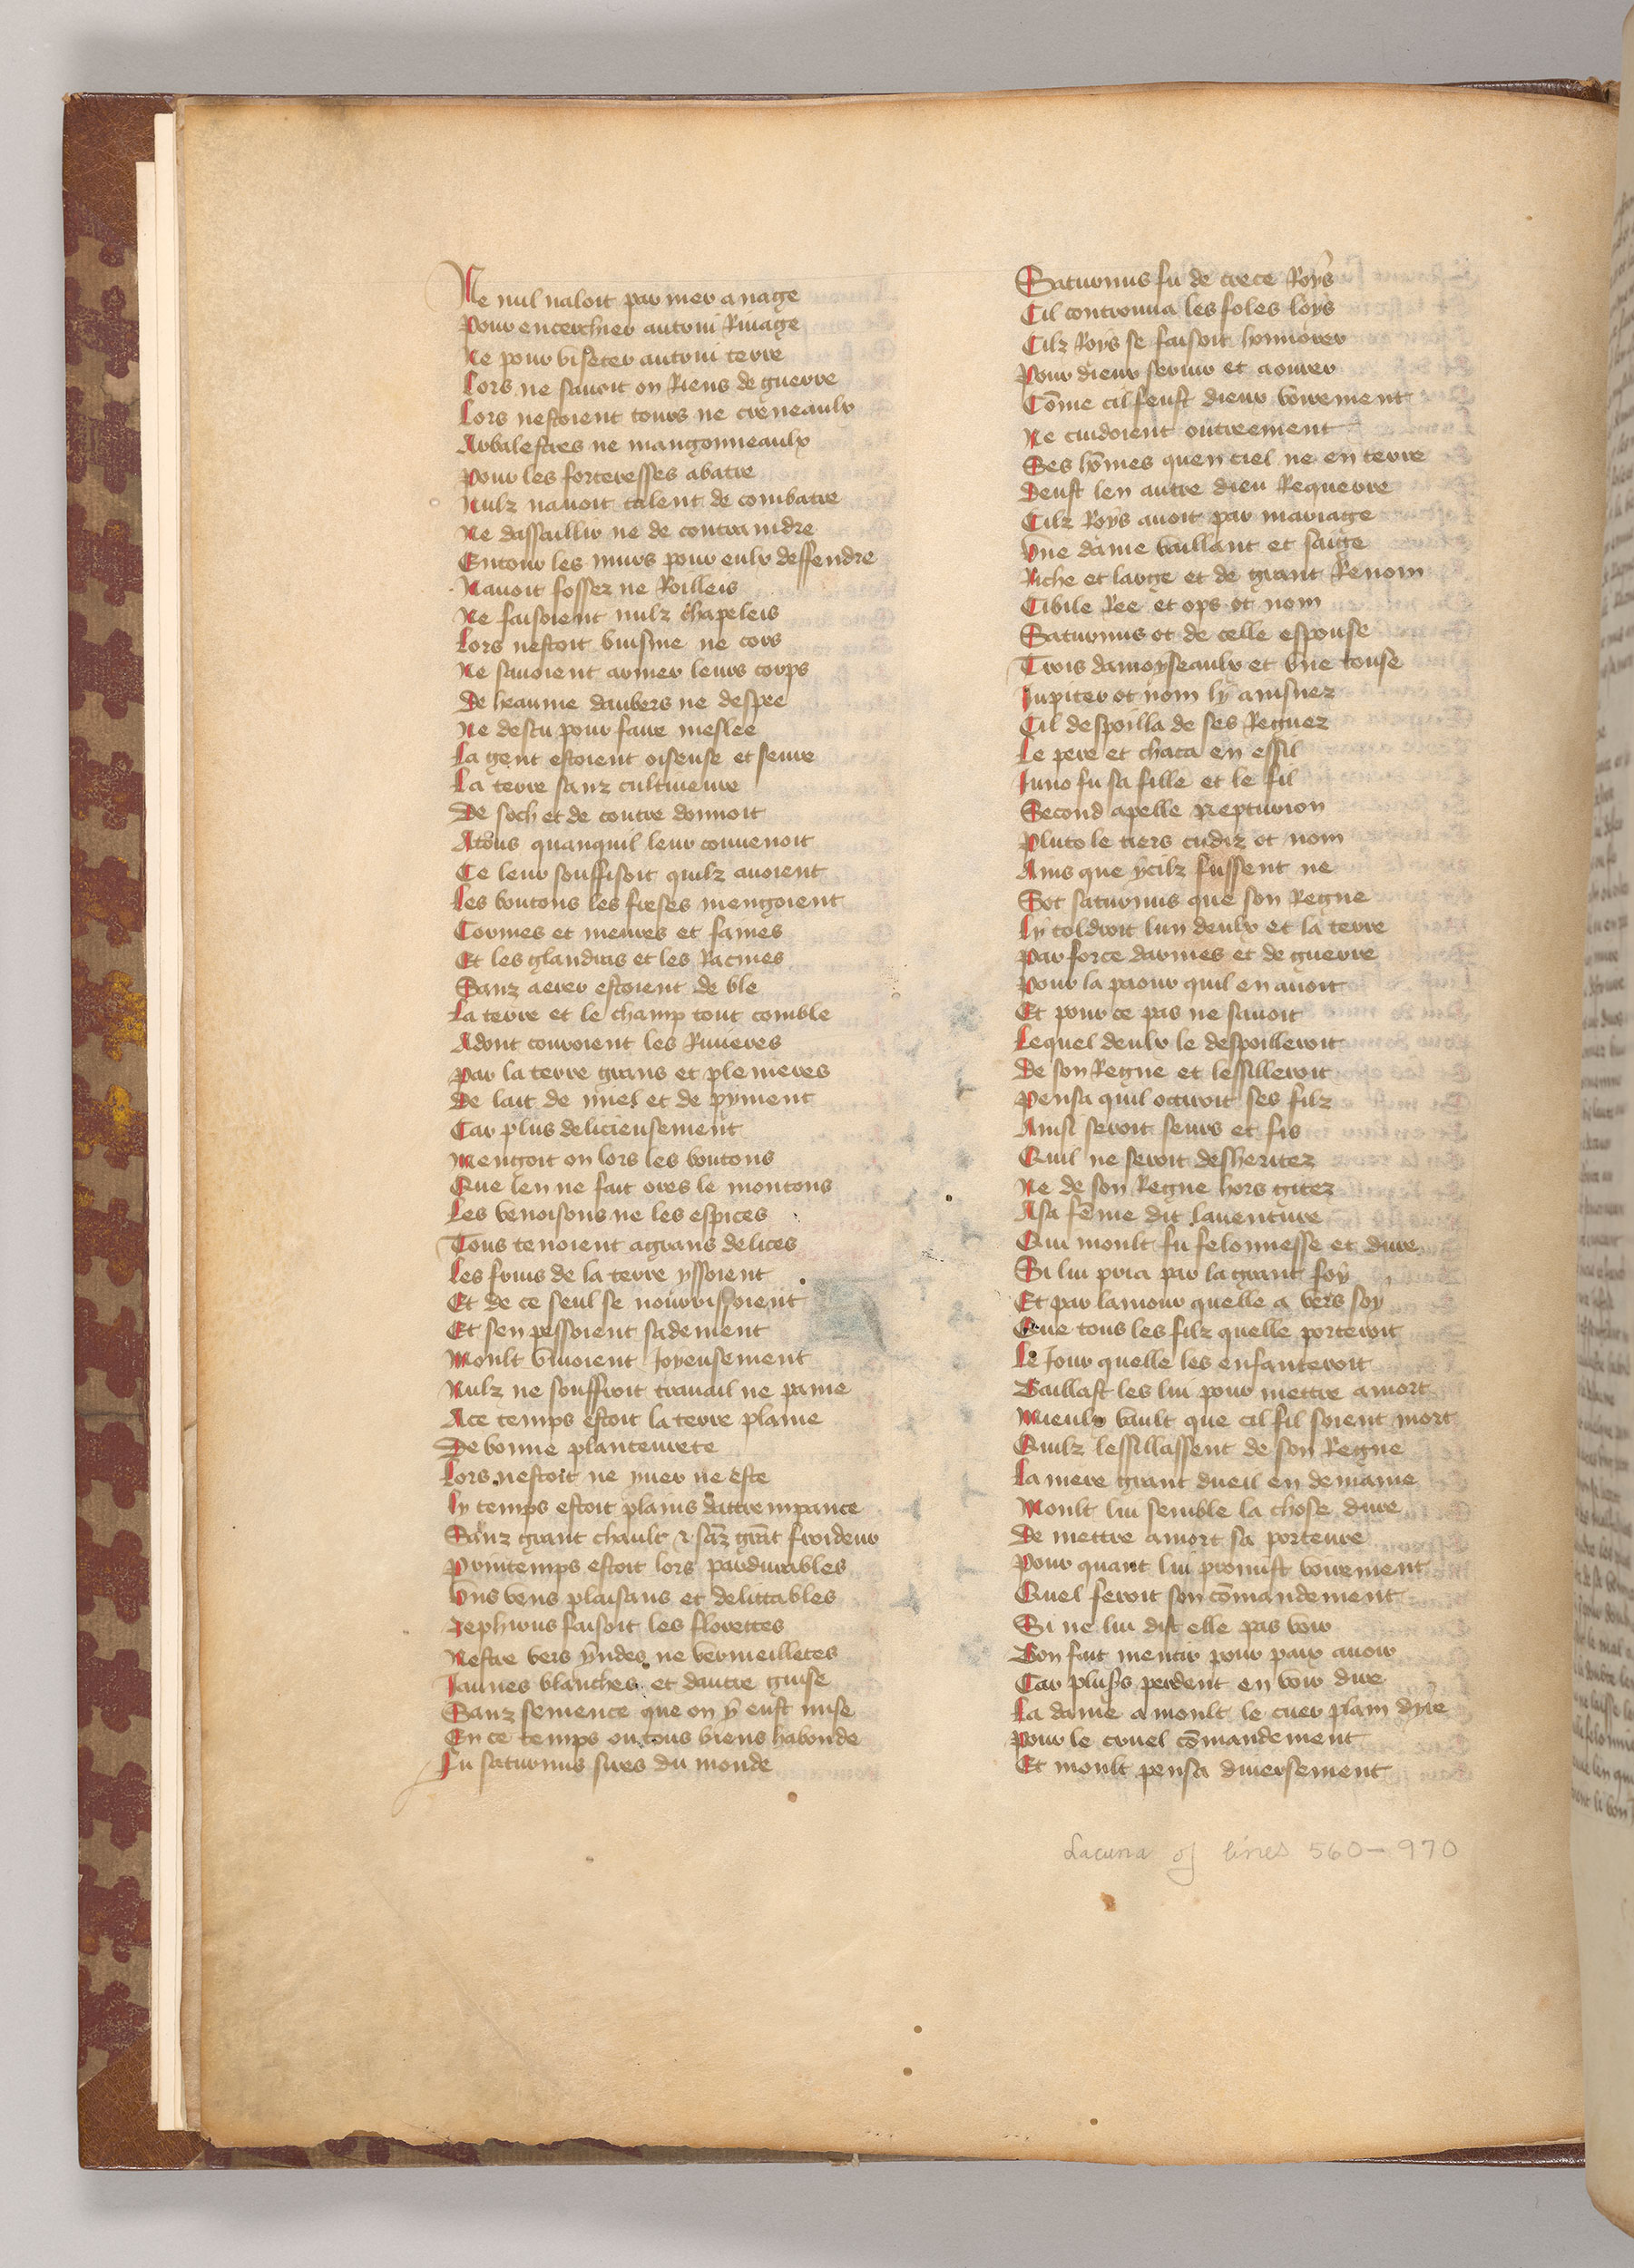 Ne nul naloit par mer a nage
Pour encerchier autrui Riuage
Ne pour viseter autrui terre
Lors ne sauoit on Riens de guerre
Lors nestoient tours ne creneaulx
Arbalestres ne mangonneaulx
Pour les forteresses abatre
Nulz nauoit talent de combatre
Ne dassaillir ne de contraindre
Entour les murs pour eulx deffendre
Nauoit fossez ne Roilleis
Ne faisoient nulz chapeleis
Lors nestoit buisine ne cors
Ne sauoient armer leurs corps
De heaume daubers ne despee
Ne descu pour faire meslee
La gent estoient oiseuse et seure
La terre sanz cultiueure
De soch et de coutre donnoit
Atous quanquil leur conuenoit
Ce leur souffisoit quilz auoient
Les boutons les freses mengoient
Cormes et meures et faines
Et les glandins et les Racines
Sanz aerer estoient de ble
La terre et le champ tout comble
Adont couroient les Riuieres
Par la terre grans et plenieres
De lait de miel et de pyment
Car plus delicieusement
Mengoit on lors les boutons
Que len ne fait ores le moutons
Les venoisons ne les espices
Tous tenoient agrans delices
Les fruis de la terre yssoient
Et de ce seul se nourrissoient
Et sen pessoient sadement
Moult viuoient Joyeusement
Nulz ne souffroit trauail ne paine
Ace temps estoit la terre plaine
De bonne plantenrete
Lors nestoit ne yuer ne este
Ly temps estoit plains dattrempance
Sanz grant chault & sãz grãt froideur
Printemps estoit lors pardurables
Uns vens plaisans et delittables
Zephirus faisoit les florettes
Nestre vers yndes ne vermeilletes
Jaunes blanches et dautre guise
Sanz semence que on y eust mise
En ce temps ou tous biens habonde
Fu saturnus sires du monde
Saturnus fu de crece Roys
Cil controuua les foles loys
Cilz Roys se faisoit honnorer
Pour dieux seruir et aourer
Cõme cil feust dieux voirement
Ne cuidoient outreement
Ses hõmes quen ciel ne en terre
Deust len autre dieu Requerre
Cilz Roys auoit par mariage
Une dame vaillant et saige
Riche et large et de grant Renom
Cibile Ree et ops ot nom
Saturnus ot de celle espouse
Trois damoyseaulx et vne touse
Jupiter ot nom ly ainsnez
Cil despoilla de ses Regnez
Le pere et chaca en essil
Juno fu sa fille et le fil
Second apelle Nepturion
Pluto le tiers cudiz ot nom
Ains que ycilz fussent ne
Sot saturnus que son Regne
Ly toldroit lun deulx et la terre
Par force darmes et de guerre
Pour la paour quil en auoit
Et pour ce pas ne sauoit
Lequel deulx le despoilleroit
De son Regne et lessilleroit
Pensa quil occiroit ses filz
Ainsi seroit seurs et fis
Quil ne seroit desheritez
Ne de son Regne hors gitez
Asa fẽme dit lauenture
Qui moult fu felonnesse et dure
Si lui pria par la grant foy
Et par lamour quelle a vers soy
Que tous les filz quelle porteroit
Le Jour quelle les enfanteroit
Baillast les lui pour mettre amort
Mieulx vault que cil fil soient mort
Quilz lessillassent de son Regne
La mere grant dueil en demaine
Moult lui semble la chose dure
De mettre amort sa porteure
Pour quant lui promist voirement
Quel feroit son cõmandement
Si ne lui dist elle pas voir
Bon fait mentir pour paix auoir
Car plus's perdent en voir dire
La dame a moult le cuer plain dyre
Pour le cruel cõmandement
Et moult pensa diuersement
Lacuna of lines 560-970